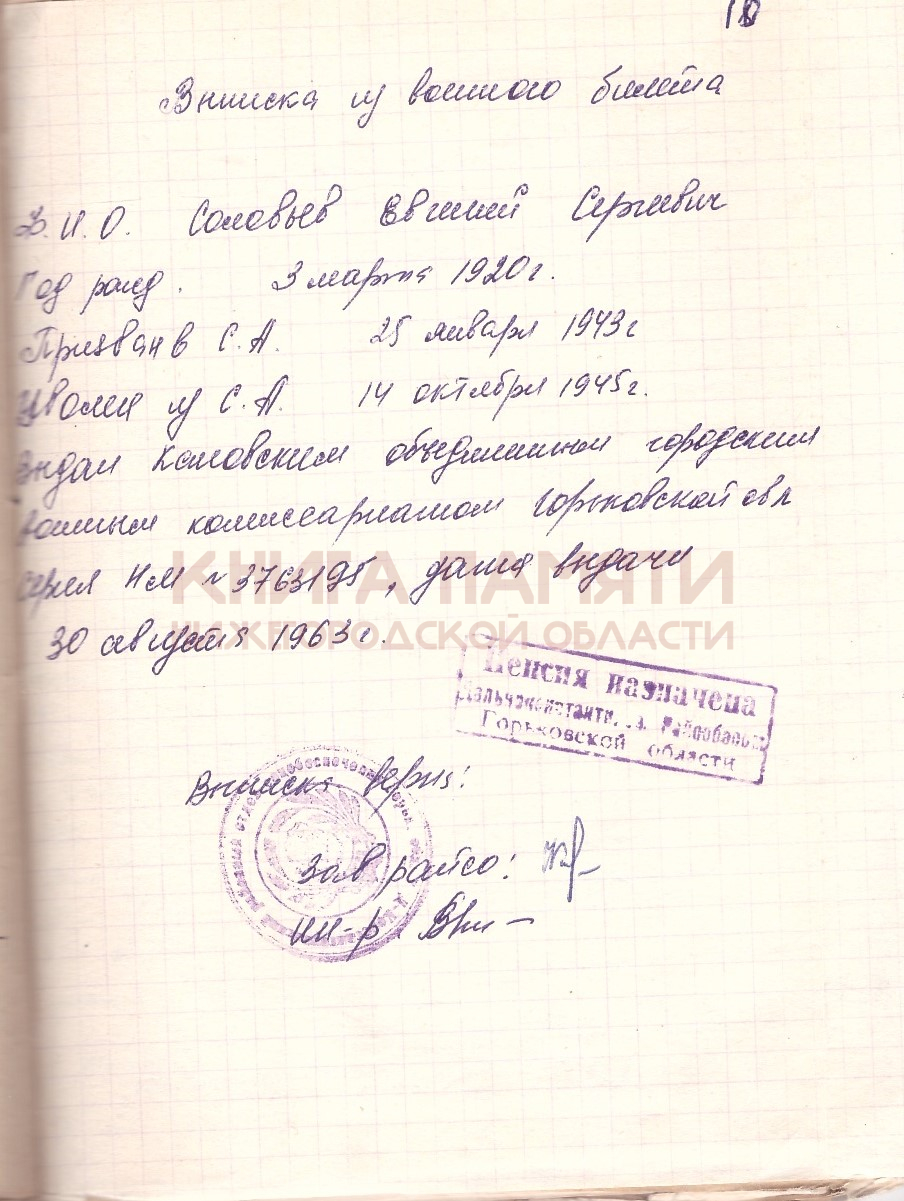 10
Выписка из военного билета
Ф.И.О. Соловьев Евгений Сергеевич
Год рожд. 3 марта 1920 г.
Призван в С.А. 25 января 1943 г
Уволен из С.А. 14 октября 1945 г.
Выдан объединенным городским
военным комиссариатом Горьковской обл
серия НМ № 3763195, дата выдачи
КНИГА ПАМЯТИ
30 августа 1963 г.
НИЖЕГОРОДСКОЙ ОБЛАСТИ
Пенсия назначена
Горьковской области
Выписка верна:
Зав райсо:
ин-р